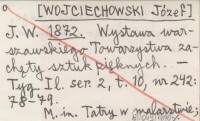 [WOJCIECHOWSKI Józef]
J. W. 1872. Wystawa war-
szawskiego Towarzystwa za-
chęty sztuk pięknych. —
Tyg. Il. ser. 2, t. 10, nr 242:
78-79.
M. in. Tatry w malarstwie;